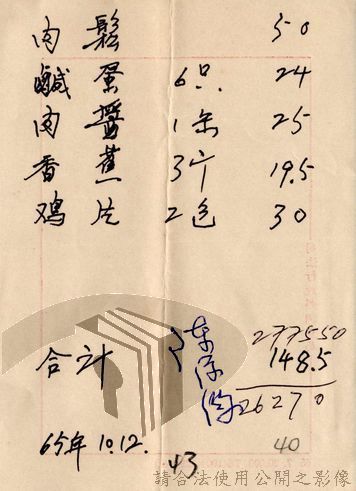 肉鬆 50
鹹蛋 6只 24
肉醬 1 25
香蕉 3斤 19.5
鸡片 2包 30
277550
合计 148.5
26270
65年10.12. 43 40
請合法使用公開之影像